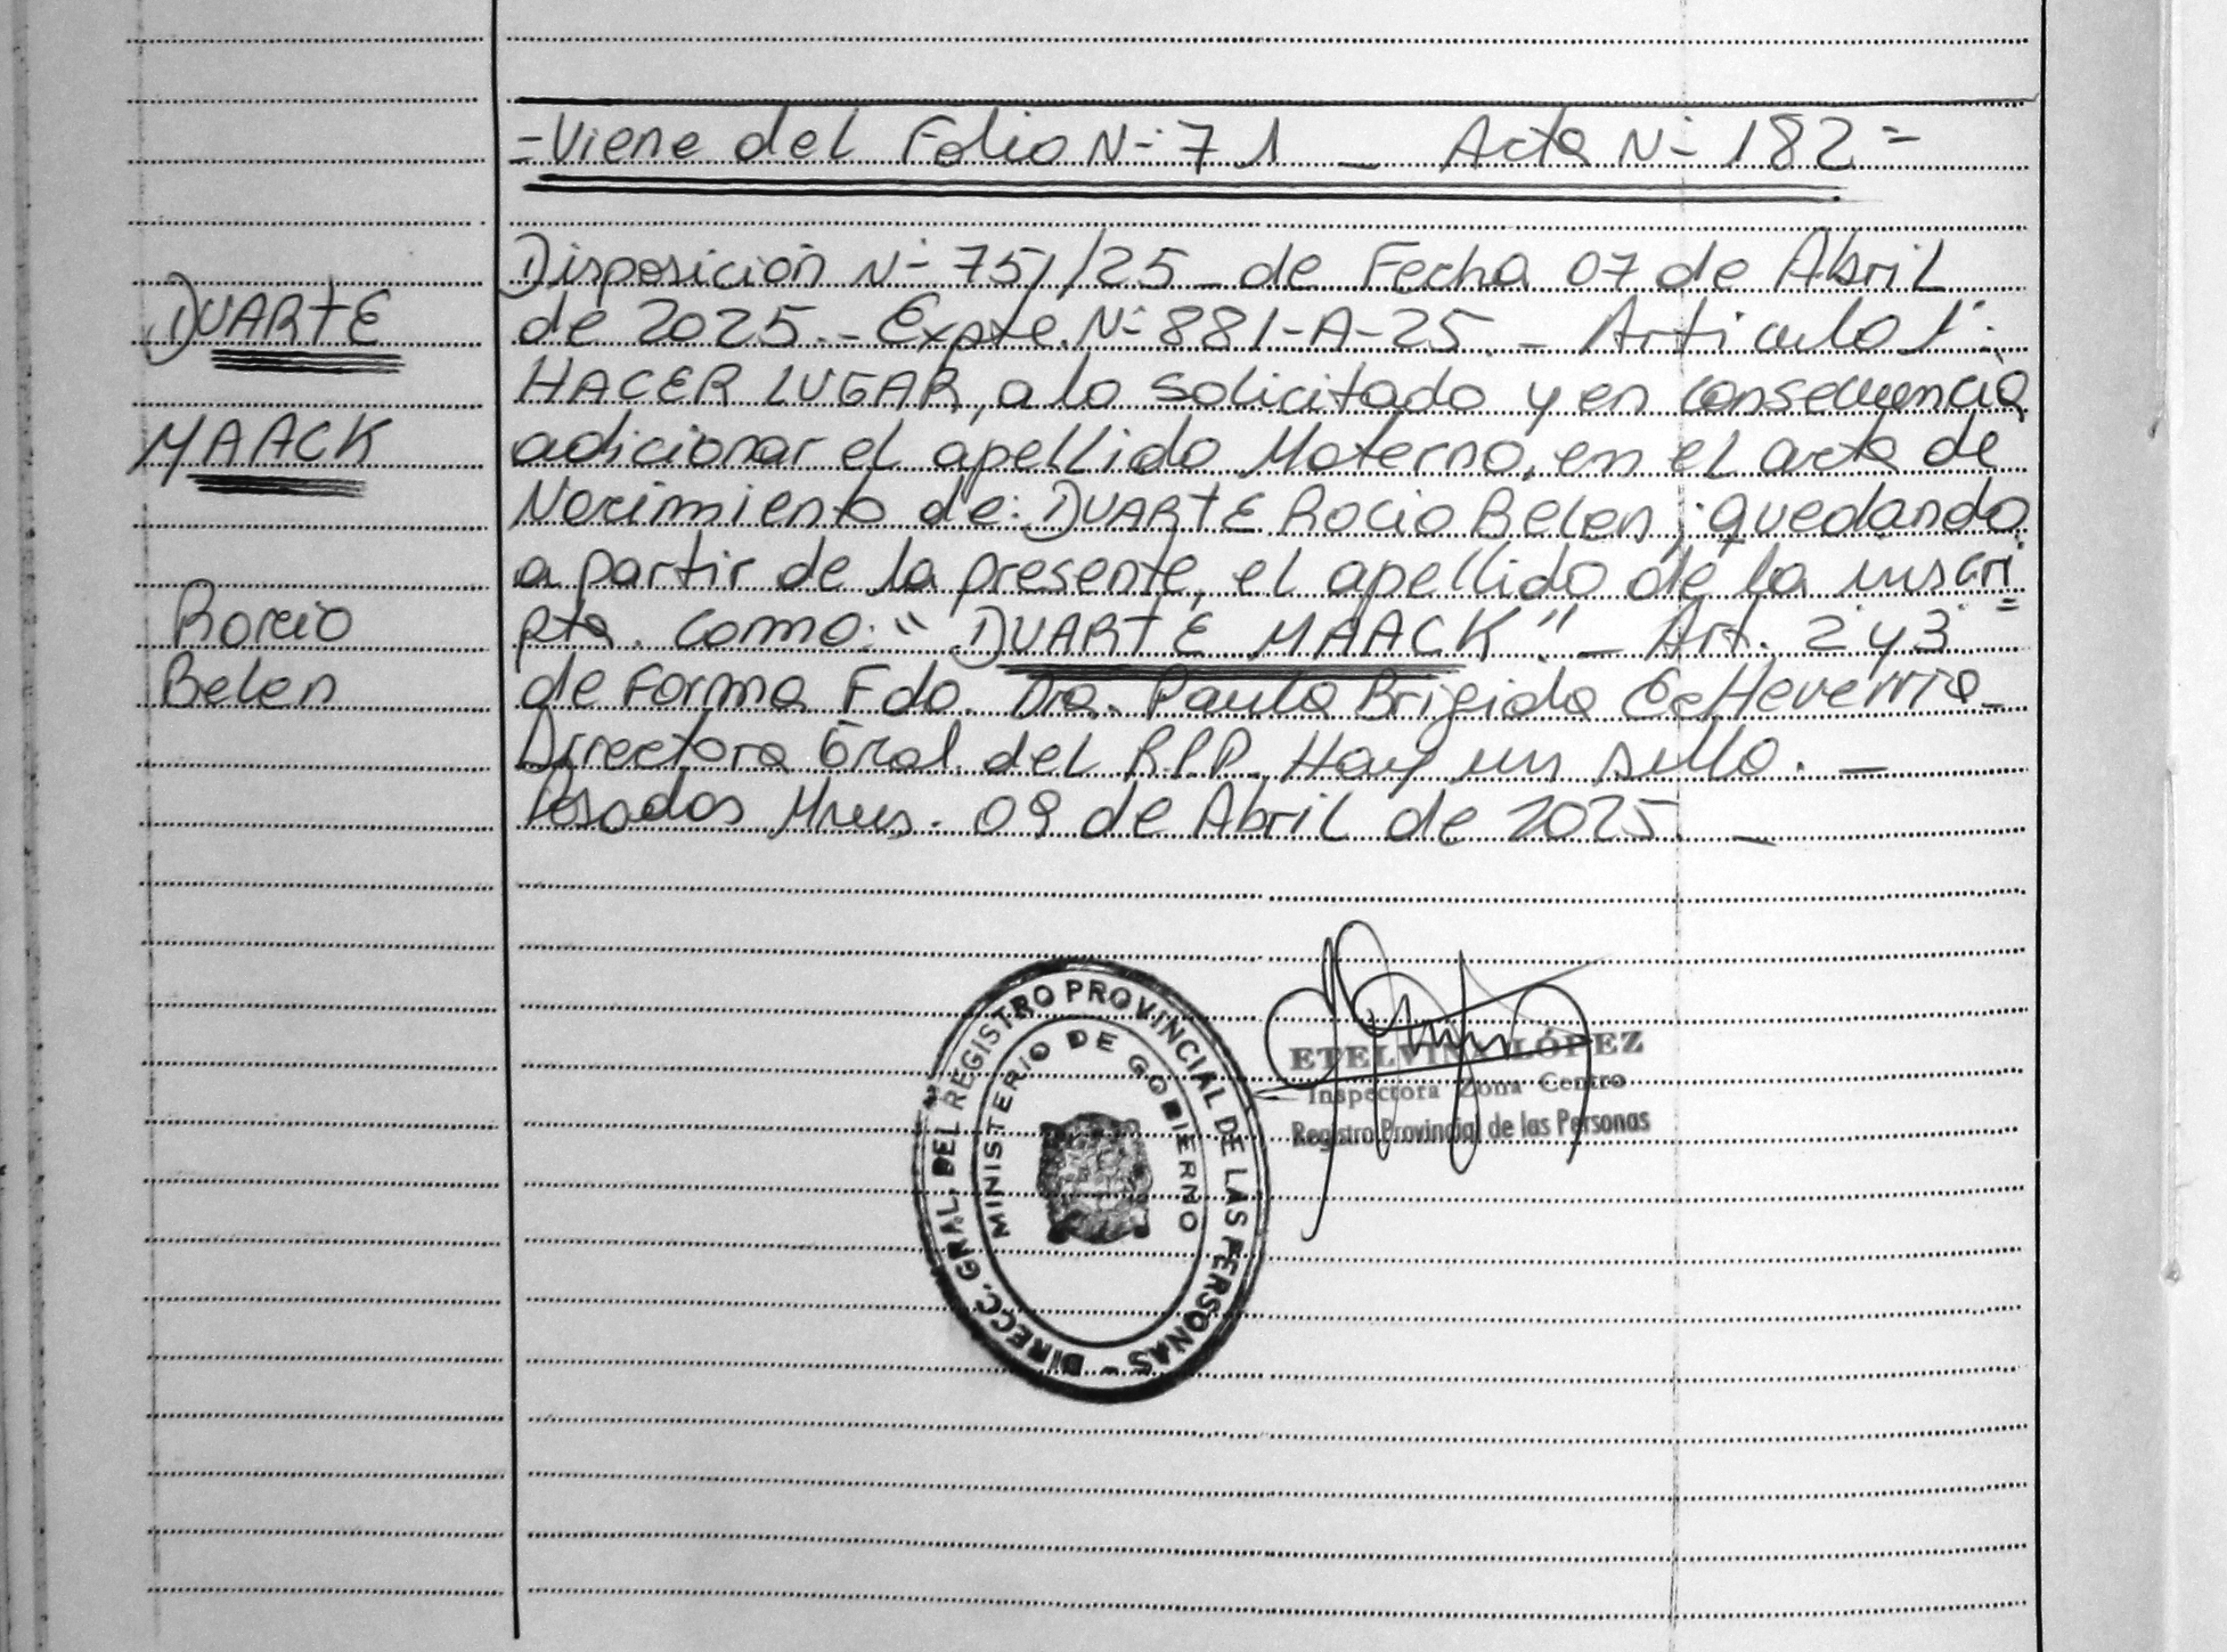 =Viene del Folio Nº 71 _ Acta Nº 182=
Disposición Nº 751/25 _ de Fecha 07 de Abril
DUARTE
de 2025.- Expte. Nº 881-A-25. _ Articulo 1º:
HACER LUGAR, a lo solicitado y en consecuencia
MAACK
adicionar el apellido Materno, en el acta de
Nacimiento de: DUARTE Rocio Belen; quedando
a partir de la presente, el apellido de la inscri=
Rocio
pta. como: "DUARTE MAACK" _ Art. 2º y 3º
Belen
de Forma Fdo. Dra. Paula Brigida EcHeverria_
Directora Gral. del R.P.P. Hay un sello. _
Posadas Mnes. 09 de Abril de 2025. _
DIRECC. GRAL. DEL REGISTRO PROVINCIAL DE LAS PERSONAS -
MINISTERIO DE GOBIERNO
ETELVINA LÓPEZ
Inspectora Zona Centro
Registro Provincial de las Personas